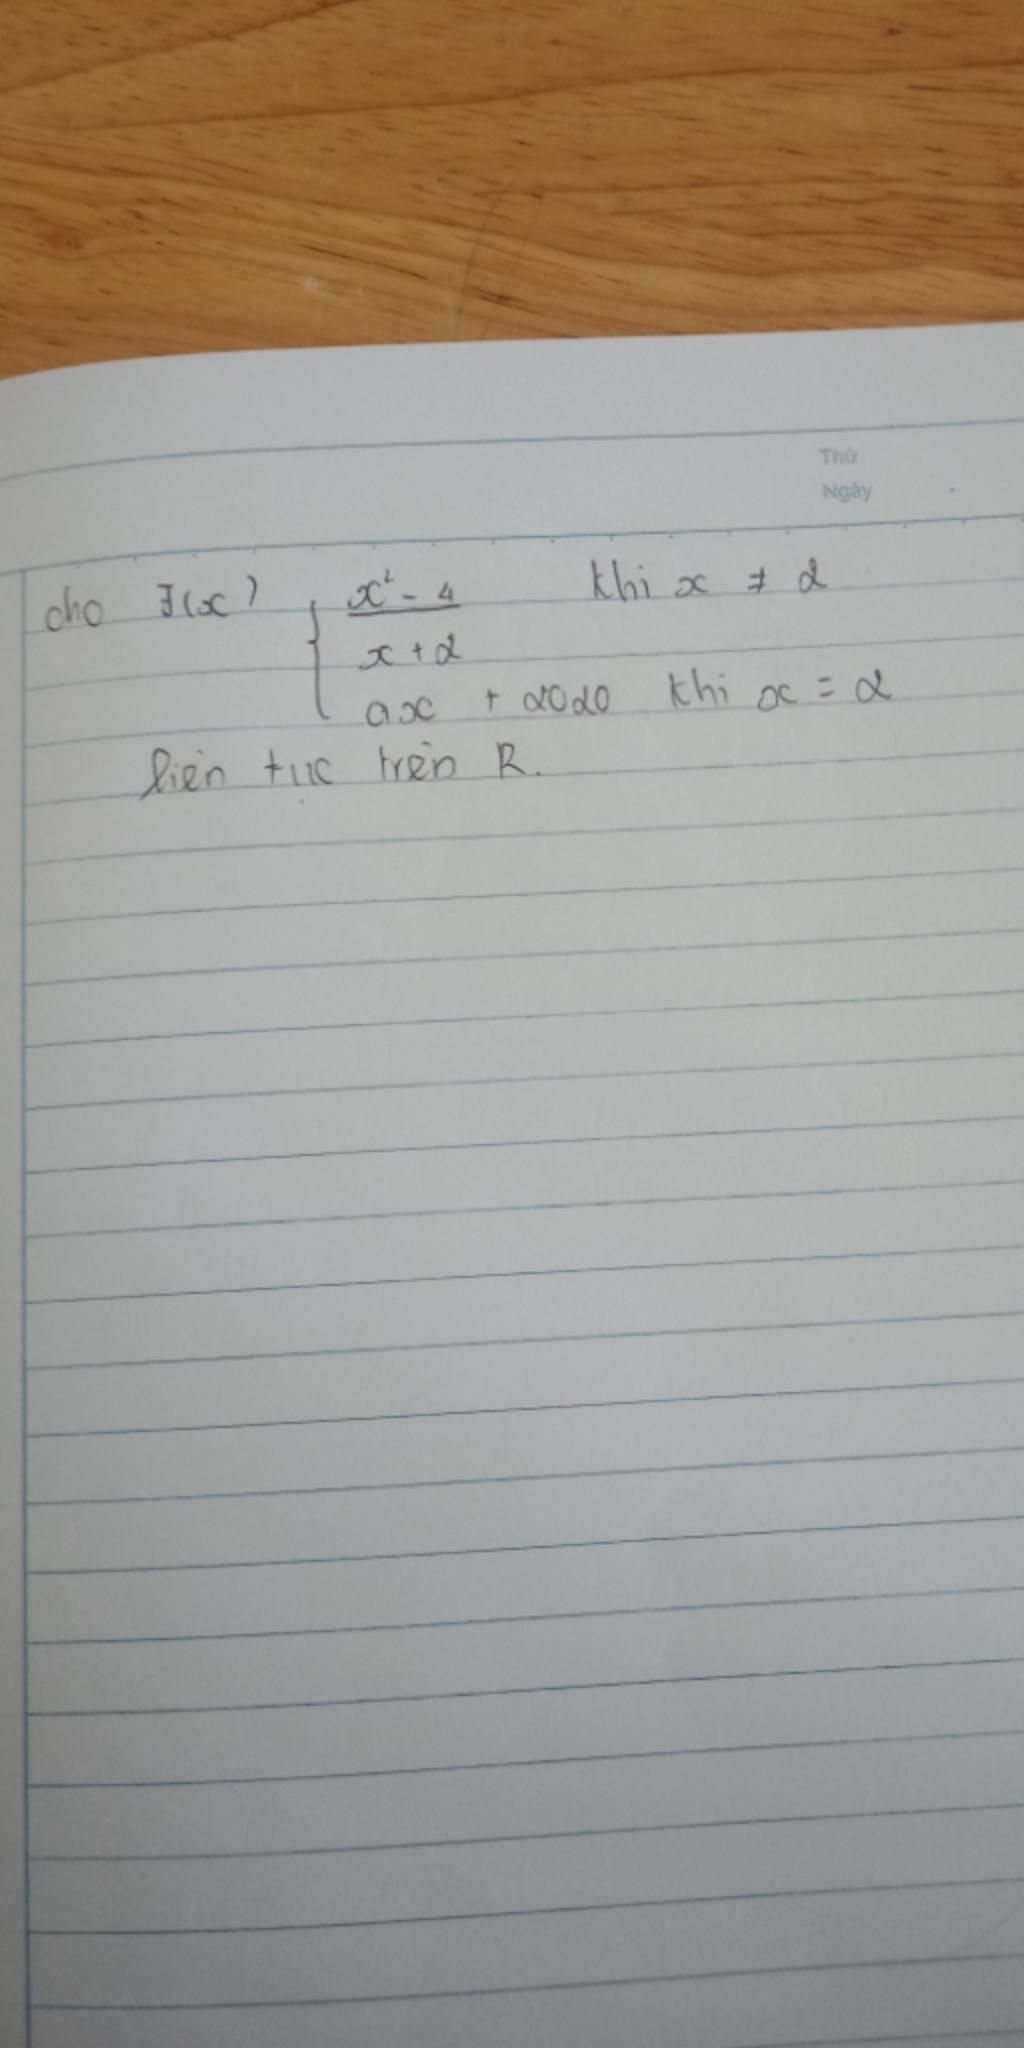 Thứ
Ngày
cho f(x) { x² - 4 khi x ≠ 2
x + 2
ax + 2020 khi x = 2
liên tục trên R.